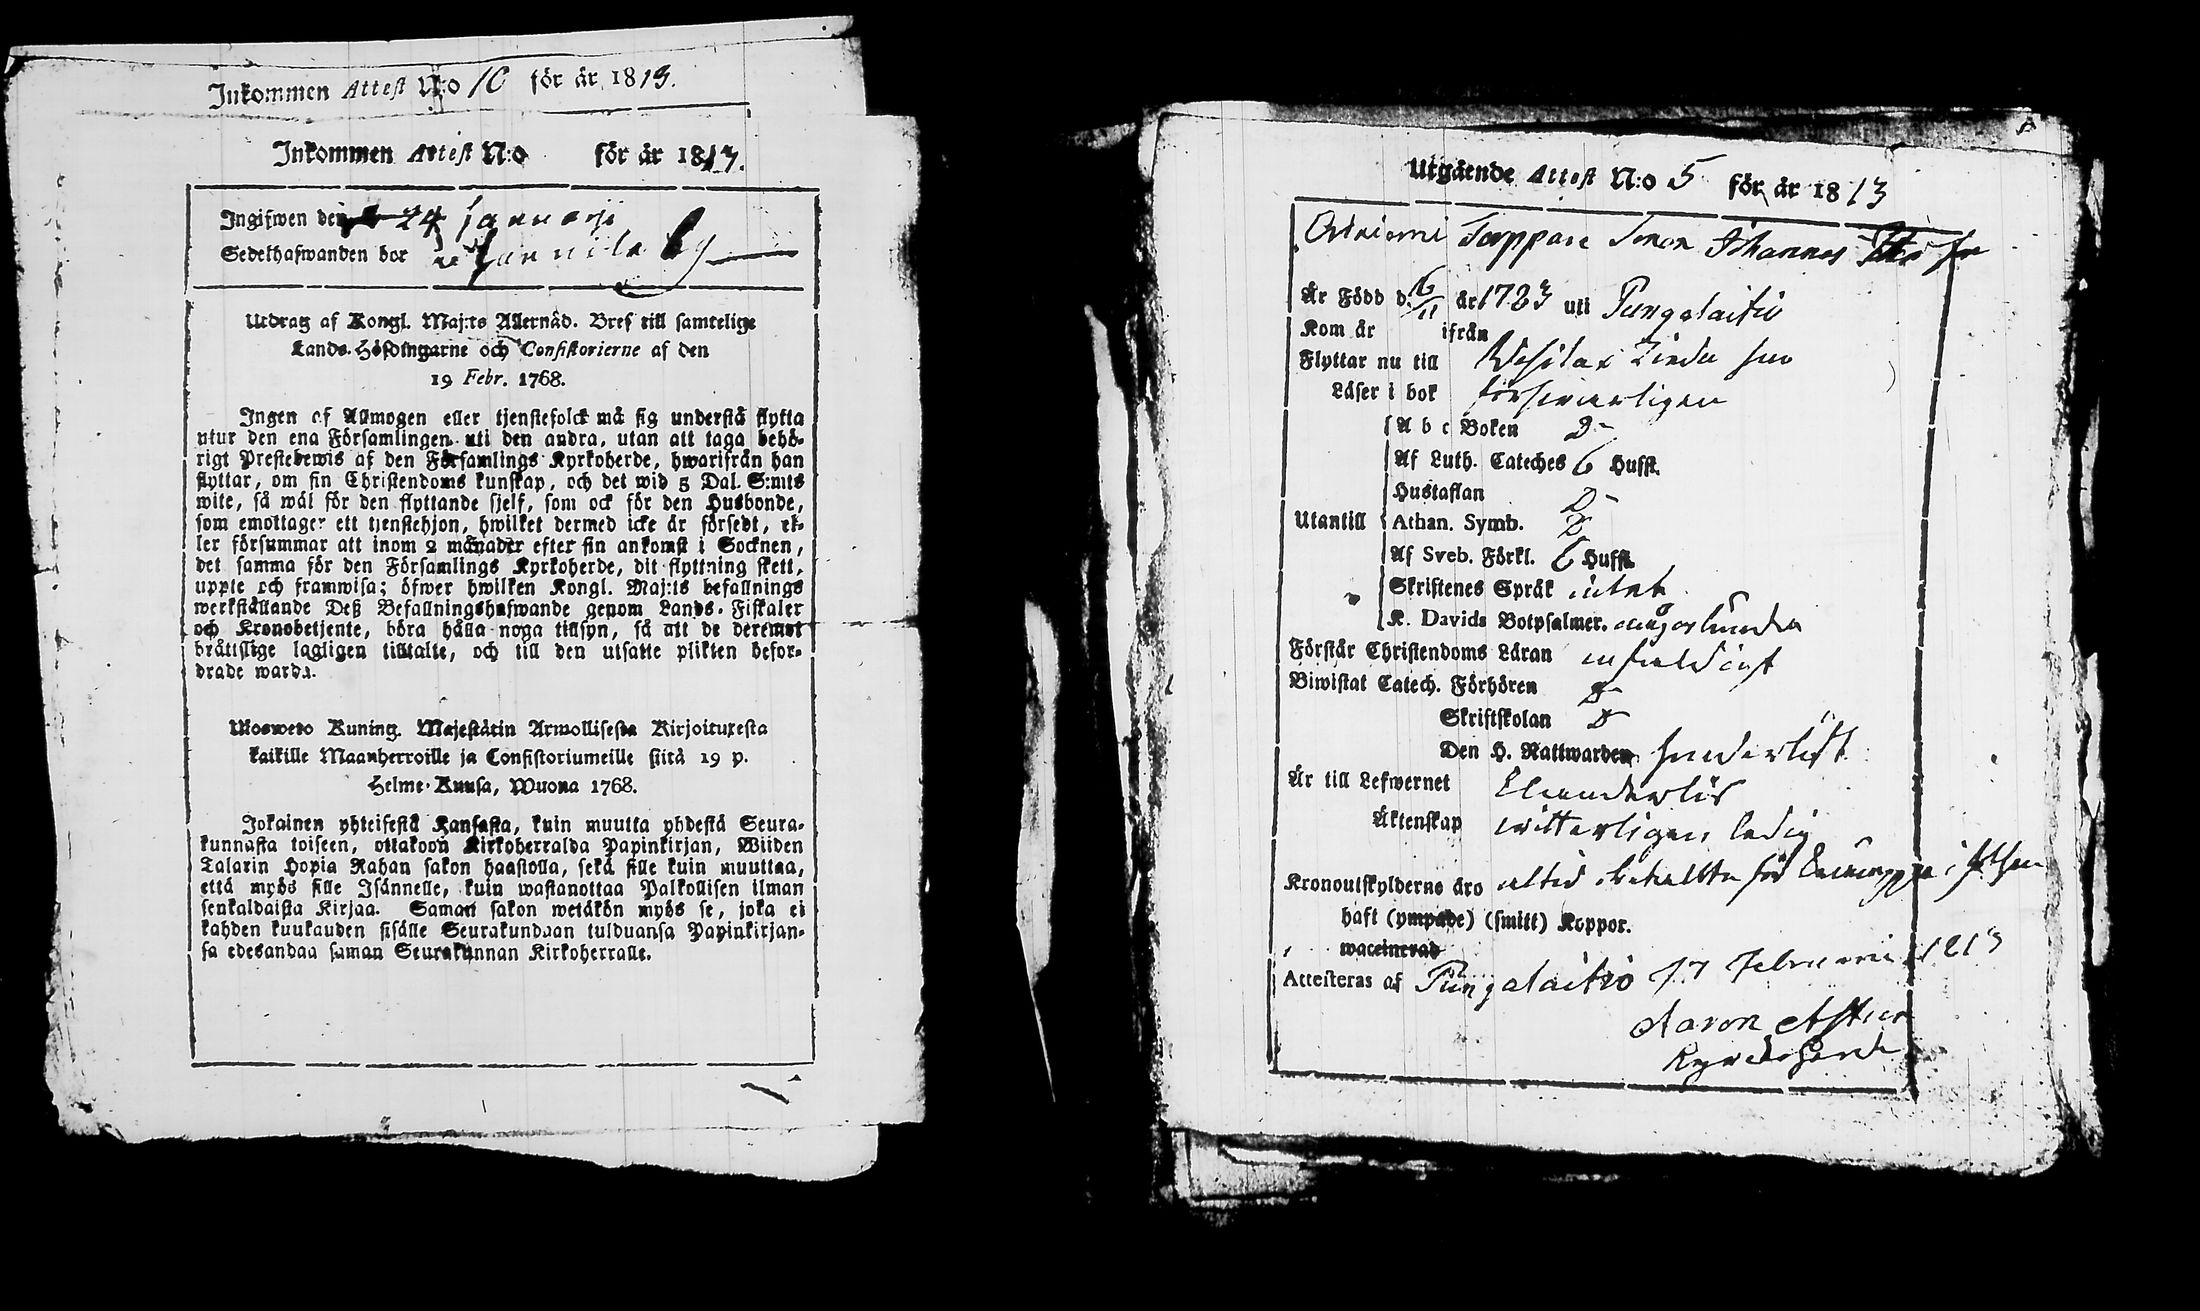 Inkommen Attest N:o 10 för år 1813.
Inkommen Attest N:o för år 1813.
Ingifwen den 24 Januarii
Sedelhafwanden bor by
Utdrag af Kongl. Maj:ts Allernåd. Bref till samtelige
Lands-Höfdingarne och Consistorierne af den
19 Febr. 1768.
Ingen af Allmogen eller tjenstefolck må sig understå flytta
utur den ena Församlingen uti den andra, utan att taga behö-
rigt Prestebewis af den Församlings Kyrkoherde, hwarifrån han
flyttar, om sin Christendoms kunskap, och det wid 5 Dal. S:mts
wite, så wäl för den flyttande sjelf, som ock för den Husbonde,
som emottager ett tjenstehjon, hwilket dermed icke är försedt, el-
ler försummar att inom 2 månader efter sin ankomst i Socknen,
det samma för den Församlings Kyrkoherde, dit flyttning skett,
uppte och framwisa; öfwer hwilken Kongl. Maj:ts befallnings
werkställande Deß Befallningshafwande genom Lands-Fiskaler
och Kronobetjente, böra hålla noga tillsyn, så att de deremot
bråttslige lagligen tilltalte, och till den utsatte plikten befor-
drade warda.
Ulosweto Kuning. Majestätin Armollisesta Kirjoituxesta
kaikille Maanherroille ja Consistoriumeille siitä 19 p.
Helme-Kuusa, Wuona 1768.
Jokainen yhteisestä Kansasta, kuin muutta yhdestä Seura-
kunnasta toiseen, ottakoon Kirkoherralda Papinkirjan, Wiiden
Talarin Hopia Rahan sakon haastolla, sekä sille kuin muuttaa,
että myös sille Isännelle, kuin wastanottaa Palkollisen ilman
senkaldaista Kirjaa. Saman sakon wetäkön myös se, joka ei
kahden kuukauden sisälle Seurakundaan tulduansa Papinkirjan-
sa edesandaa saman Seurakunnan Kirkoherralle.
Utgående Attest N:o 5 för år 1813
Sonen Johannes
Är Född d. 6/11 år 1783 uti Pungalaitio
Kom år ifrån
Flyttar nu till
Läser i bok försvarligen
A b c Boken D-
Af Luth. Cateches 6 Hufst.
Hustaflan D-
Utantill Athan. Symb. D
Af Sveb. Förkl. 6 Hufst.
Skriftenes Språk intet
K. Davids Botpsalmer. någorlunda
Förstår Christendoms Läran enfaldigt
Biwistat Catech. Förhören D-
Skriftskolan D
Den H. Nattwarden
Är till Lefwernet
Äktenskap witterligen ledig
Kronoutskylderne äro altid betalte för
haft (ympade) (smitt) Koppor.
waccinerad
Attesteras af Pungalaitio 17 Februarii 1813
Aaron
Kyrckoherde